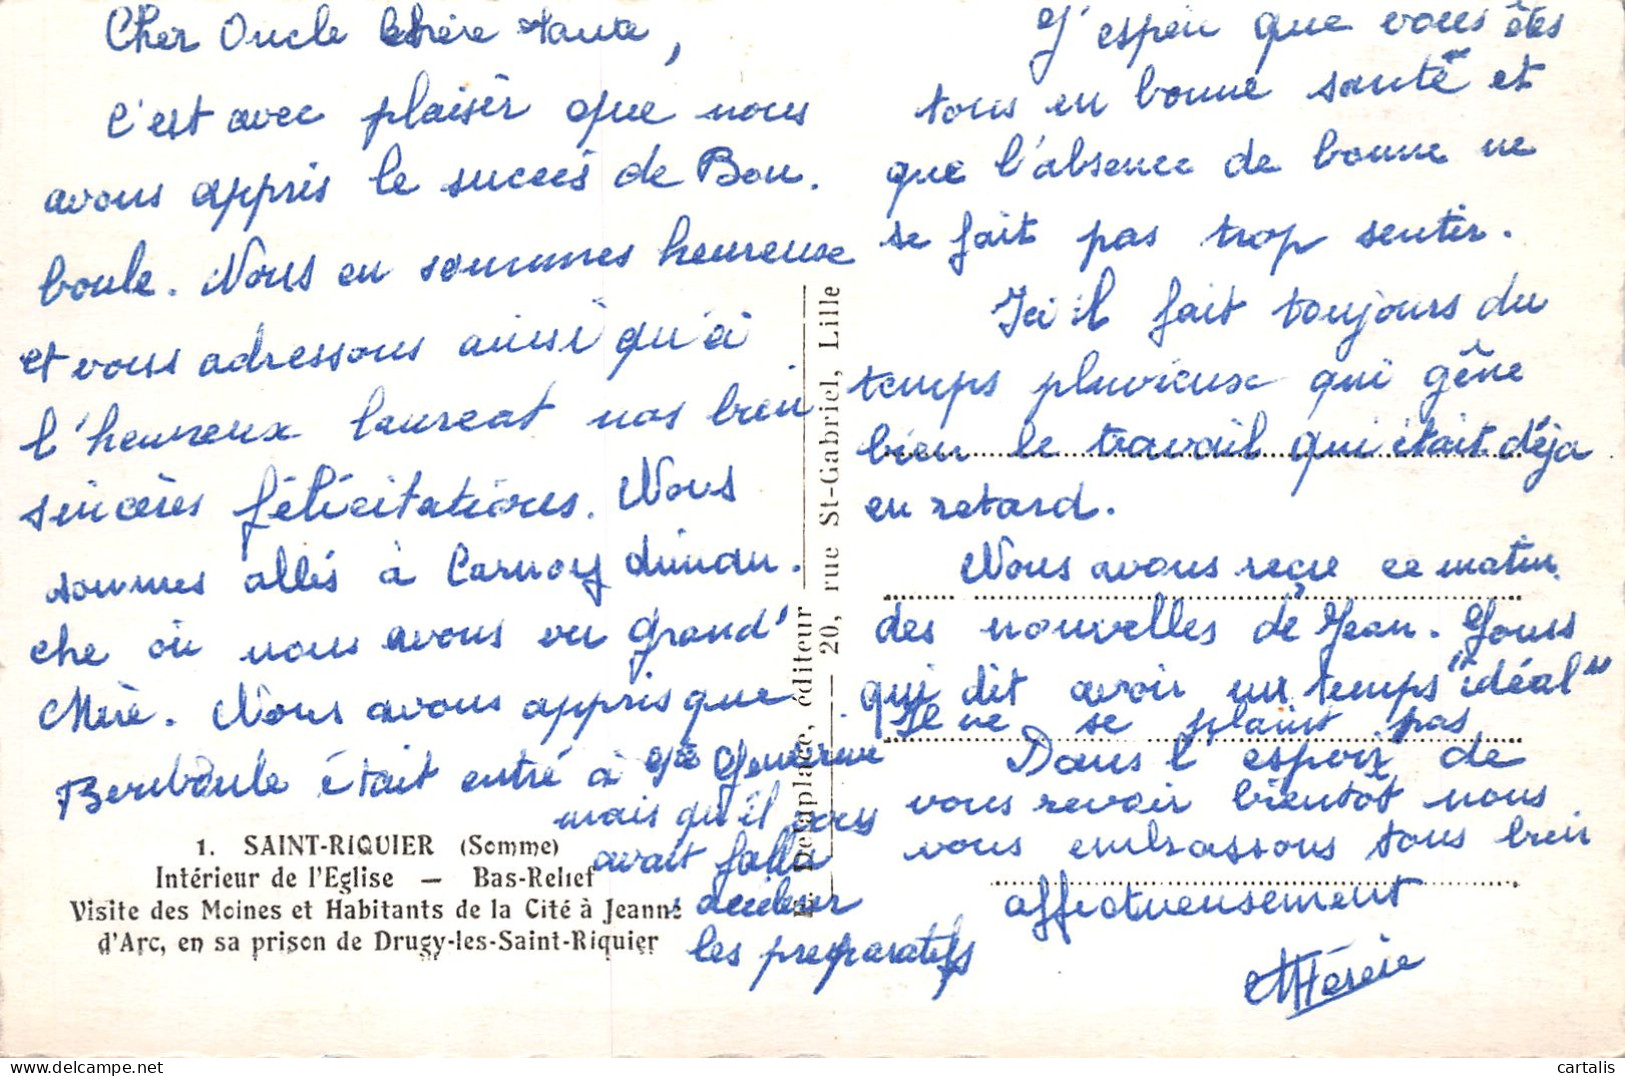 Cher Oncle Chère Tante,
C'est avec plaisir que nous
avons appris le succès de Bou.
boule. Nous en sommes heureuse
et vous adressons ainsi qu'à
l'heureux laureat nos bien
sincères félicitations. Nous
sommes allés à Carnoy diman.
che où nous avons vu Grand'
Mère. Nous avons appris que
Bouboule était entré à Ste Geneviève
mais qu'il vous
avait fallu
les preparatifs
1. SAINT-RIQUIER (Somme)
Intérieur de l'Eglise — Bas-Relief
Visite des Moines et Habitants de la Cité à Jeanne
d'Arc, en sa prison de Drugy-les-Saint-Riquier
E. Delaplace, éditeur
20, rue St-Gabriel, Lille
J'espère que vous êtes
tous en bonne santé et
que l'absence de bonne ne
se fait pas trop sentir.
Ici il fait toujours du
temps pluvieux qui gêne
bien le travail qui était déja
en retard.
Nous avons reçu ce matin
des nouvelles de Jean.
qui dit avoir un temps "idéal"
Il ne se plaint pas
Dans l'espoir de
vous revoir bientôt nous
vous embrassons tous bien
affectueusement
MThérèse
cartalis